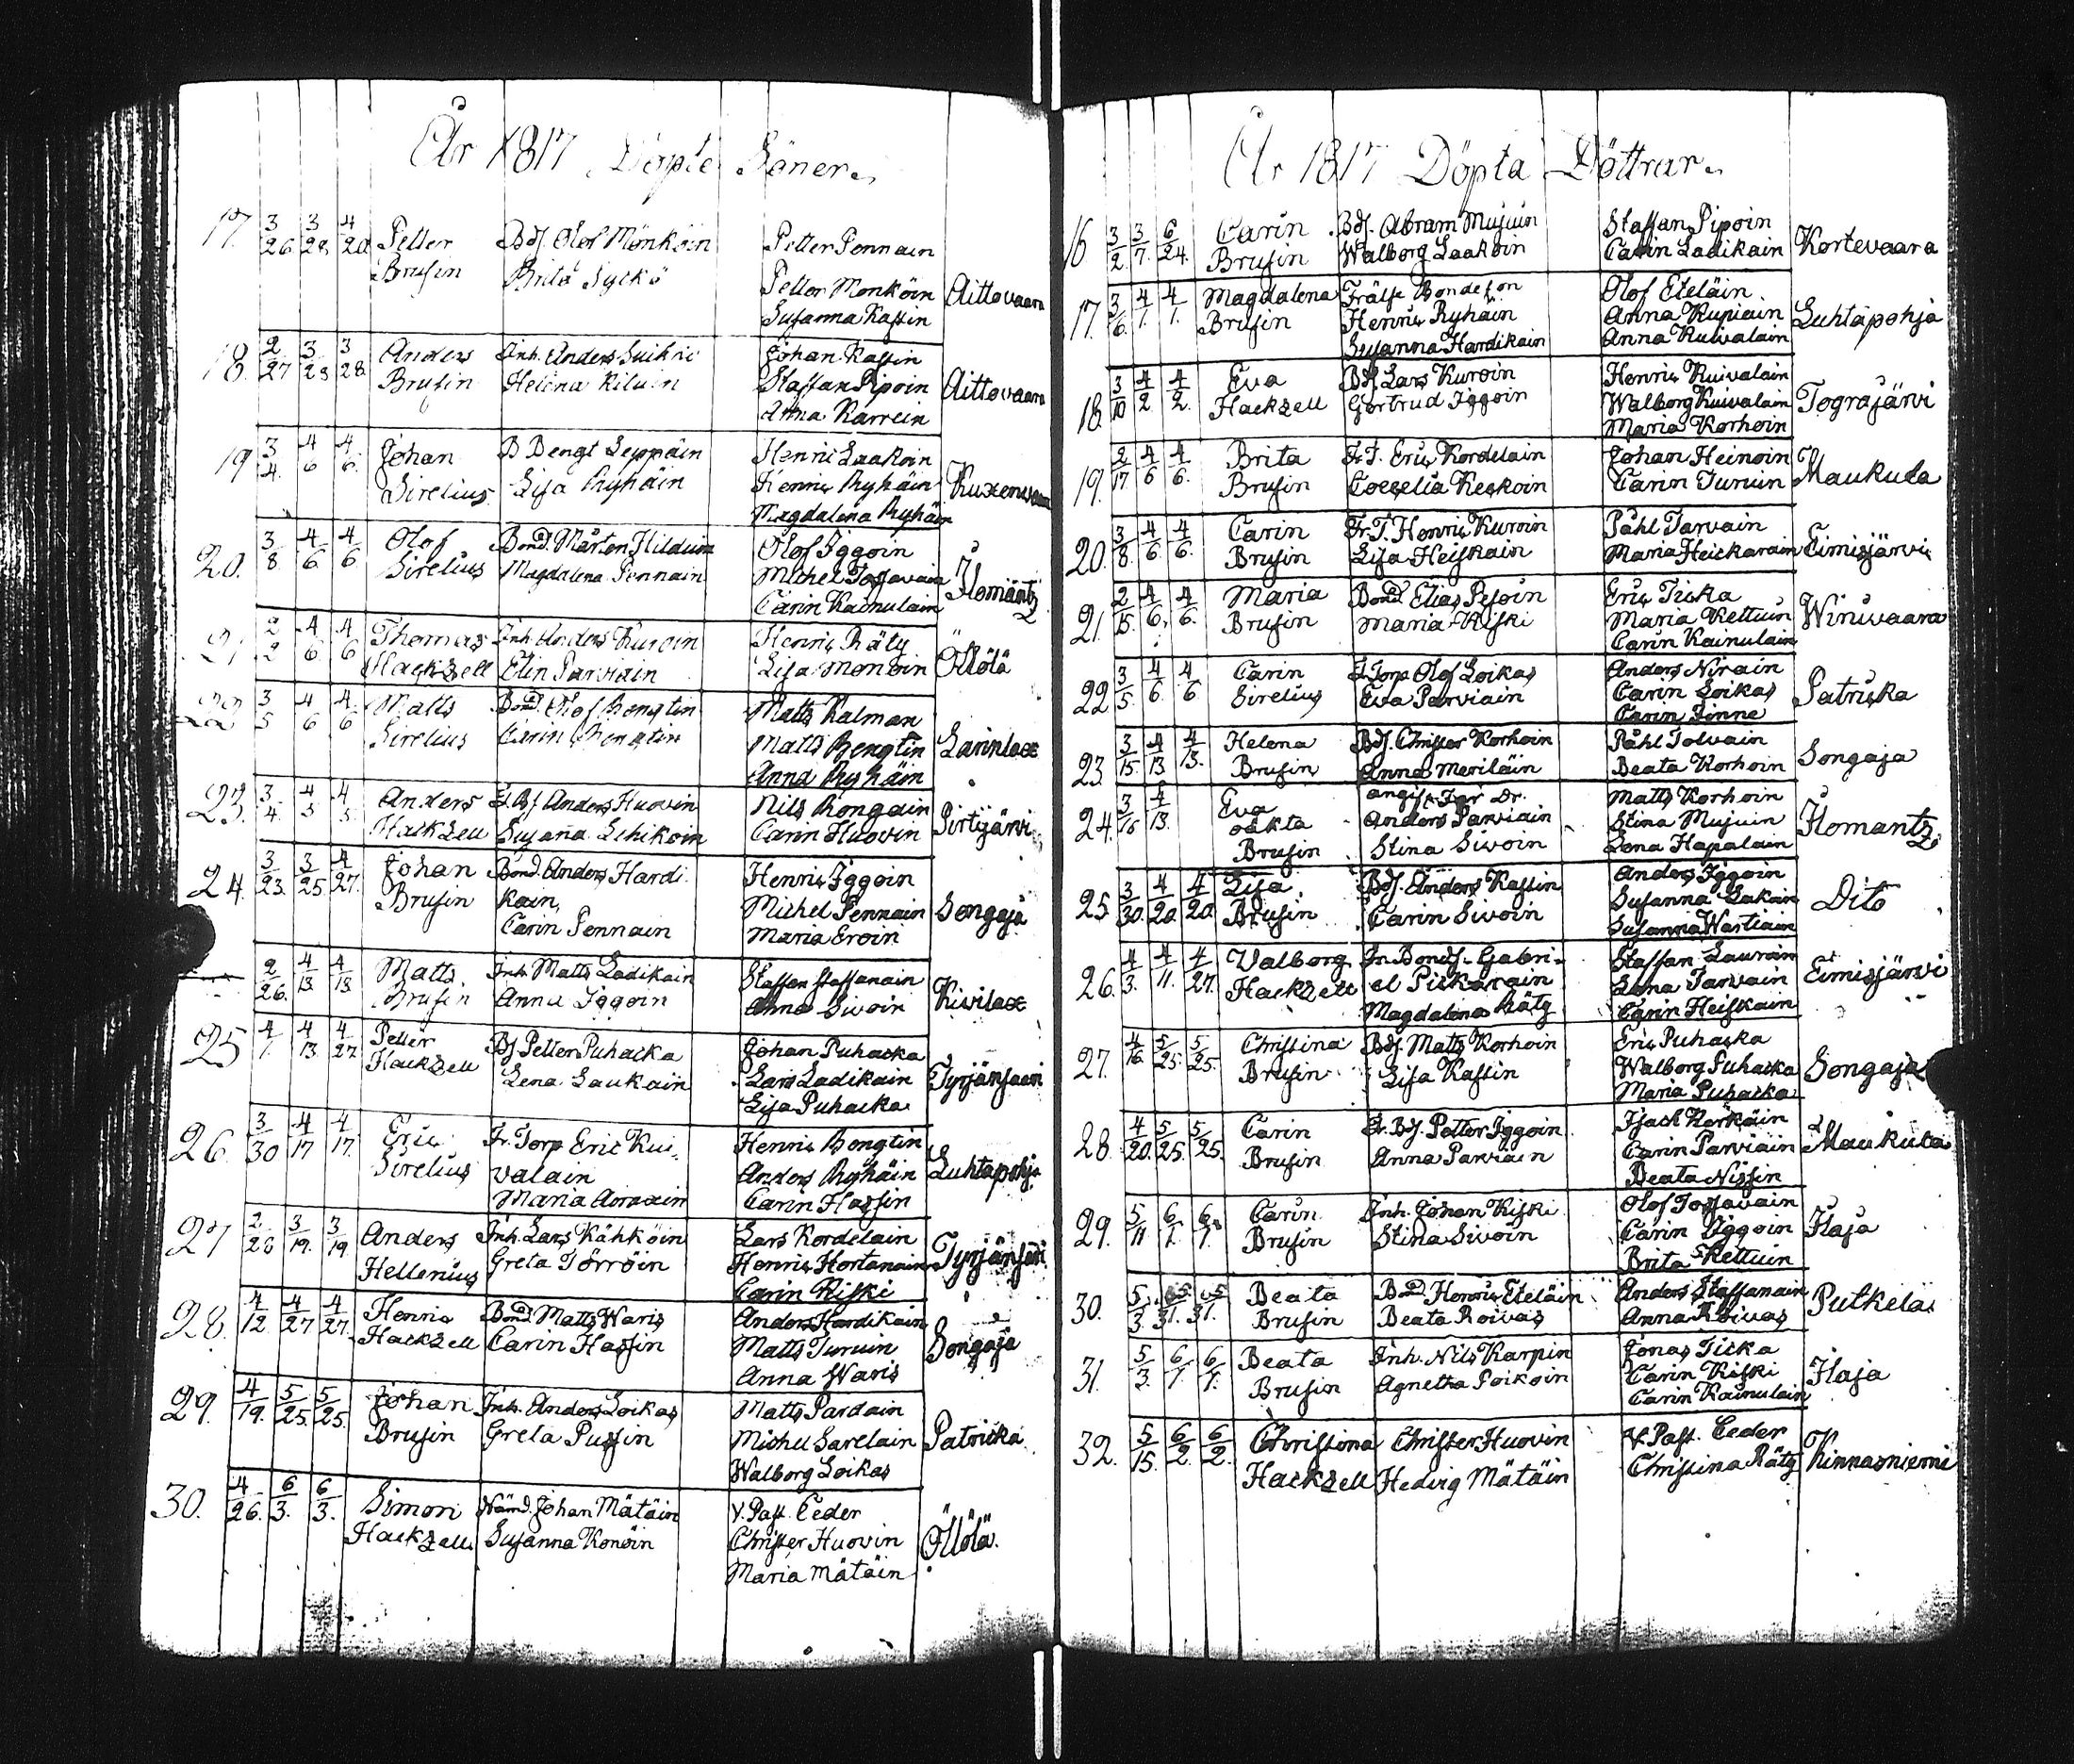 År 1817 Döpte Söner.
17. 3/26 3/28 4/20 Petter Bdf. Olof Mönköin Petter Pennain
Brusin Brita Syckö Petter Monköin Aittovaara
Susanna Kassin
18. 2/27 3/28 3/28 Anders Inh. Anders Suihko Johan Kassin
Brusin Helena Kiluin Staffan Pipoin Aittovaara
Anna Karrein
19 3/4. 4/6 4/6. Johan B Bengt Seppäin Henric Laakoin
Sirelius Lisa Ryhäin Henric Ryhäin
Magdalena Ryhäin
20. 3/8. 4/6 4/6 Olof Bond. Mårten Hilduin Olof Iggoin
Sirelius Magdalena Pennain Michel Tossavain Ilomantz
Carin Kainulain
21 2/2 4/6 4/6 Thomas Inh Anders Kuroin Henric Räty
Hackzell Elin Parviain Lisa Monoin Öllölä
22 3/5 4/6 4/6 Matts Bond. Olof Bengtin Matts Kalman
Sirelius Carin Bengtin Matts Bengtin Sarinlax
Anna Ryhäin
23. 3/4. 4/3 4/3. Anders Anders Huovin Nils Rongain
Hackzell Susanna Lehikoin Carin Huovin Pirtijärvi
24. 3/23. 3/25. 4/27. Johan Bond. Anders Hardi Henric Iggoin
Brusin kain, Michel Pennain Songaja
Carin Pennain Maria Eroin
2/26. 4/13. 4/13. Matts Inh Matts Ladikain Staffan Staffanain
Brusin Anna Iggoin Anna Sivoin Kivilax
25 4/1. 4/13. 4/27 Petter Bf Petter Puhacka Johan Puhacka
Hackzell Lena Laukain Lars Ladikain Tyrjänsaari
Lisa Puhacka
26. 3/30 4/17 4/17. Eric Fr. Torp Eric Kui Henric Bengtin
Sirelius valain Anders Ryhäin Luhtapohja
Maria Carin Hassin
27 2/28 3/19. 3/19 Anders Inh. Lars Kähköin Lars Kordelain
Hellenius Greta Törröin Henric Hortanain
Carin Kiski
28. 4/12. 4/27 4/27. Henric Bond Matts Waris Anders Hardikain
Hackzell Carin Hassin Matts Turuin Songaja
Anna Waris
29. 4/19. 5/25. 5/25. Johan Inh. Anders Loikas Matts Pardain
Brusin Greta Pussin Michel Sarelain Patricka
Walborg Loikas
30. 4/26. 6/3. 6/3. Simon Nämd. Johan Mätäin V. Past. Ceder
Hackzell Susanna Konöin Christer Huovin Öllölä.
Maria Mätäin
År 1817 Döpta Döttrar.
16 3/2. 3/7. 6/24. Carin Bdf. Abram Mujuin Staffan Pipoin
Brusin Walborg Laakoin Carin Ladikain Kortevaara
17. 3/6. 4/1. 4/1. Magdalena Frälse Bondeson Olof Eteläin
Brusin Henric Ryhäin Anna Kupiain Luhtapohja
Susanna Hardikain Anna Kuivalain
18. 3/10 4/2. 4/2. Eva Bdf. Lars Kuroin Henric Kuivalain
Hackzell Gertrud Iggoin Walborg Kuivalain Tograjärvi
Maria Korhoin
19. 2/17. 4/6 4/6. Brita Fr T. Eric Kordelain Johan Heinoin
Brusin Coeselia Keskoin Carin Turuin Maukula
20. 3/8. 4/6. 4/6. Carin Fr. T. Henric Kuroin Påhl Tarvain
Brusin Lisa Heiskain Maria Heickarain Eimisjärvi
21. 2/15. 4/6. 4/6. Maria Bond Elias Pesoin Eric Ticka
Brusin Maria Kiski Maria Kettuin Winivaara
Carin Kainulain
22 3/5. 4/6. 4/6 Carin F. Torp Olof Loikas Anders Nirain
Sirelius Eva Parviain Carin Loikas Patricka
Carin Jinne
23. 3/15. 4/13 4/13. Helena Bdf. Christer Korhoin Påhl Tolvain
Brusin Anna Meriläin Beata Korhoin Songaja
24. 3/16 4/13. Eva angif. far Dr. Matts Korhoin
oäkta Anders Parviain Stina Mujuin Ilomantz.
Brusin Stina Sivoin Lena Hapalain
25. 3/30. 4/20. 4/20 Lisa Bdf. Anders Kassin Anders Iggoin
Brusin Carin Sivoin Susanna Lakain Dito
Susanna Wartiain
26. 4/3. 4/11. 4/27. Walborg Fr. Bondf. Gabri- Staffan Laurain
Hackzell el Pickarain Lena Tarvain Eimisjärvi
Magdalena Räty Carin Heiskain
27. 4/16. 5/25. 5/25. Christina Bdf. Matts Korhoin Eric Puhacka
Brusin Lisa Kassin Walborg Puhacka Songaja
Maria Puhacka
28. 4/20. 5/25. 5/25. Carin Fr. Bf. Petter Iggoin Isach Korkäin
Brusin Anna Parviain Carin Parviain Maukula
Beata Nissin
29. 5/11 6/1. 6/1. Carin Inh. Johan Kiski Olof Tossavain
Brusin Stina Sivoin Carin Iggoin Ilaja
Brita Kettuin
30. 5/3. 5/31. 5/31. Beata Bond Henric Eteläin Anders Staffanain
Brusin Beata Roivas Anna Roivas Putkela
31. 5/3. 6/1. 6/1. Beata Inh. Nils Karpin Jonas Ticka
Brusin Agnetha Poikoin Carin Kiski Ilaja
Carin Kainulain
32. 5/15. 6/2. 6/2. Christina Christer Huovin V. Past. Ceder
Hackzell Hedvig Mätäin Christina Räty Kinnasniemi